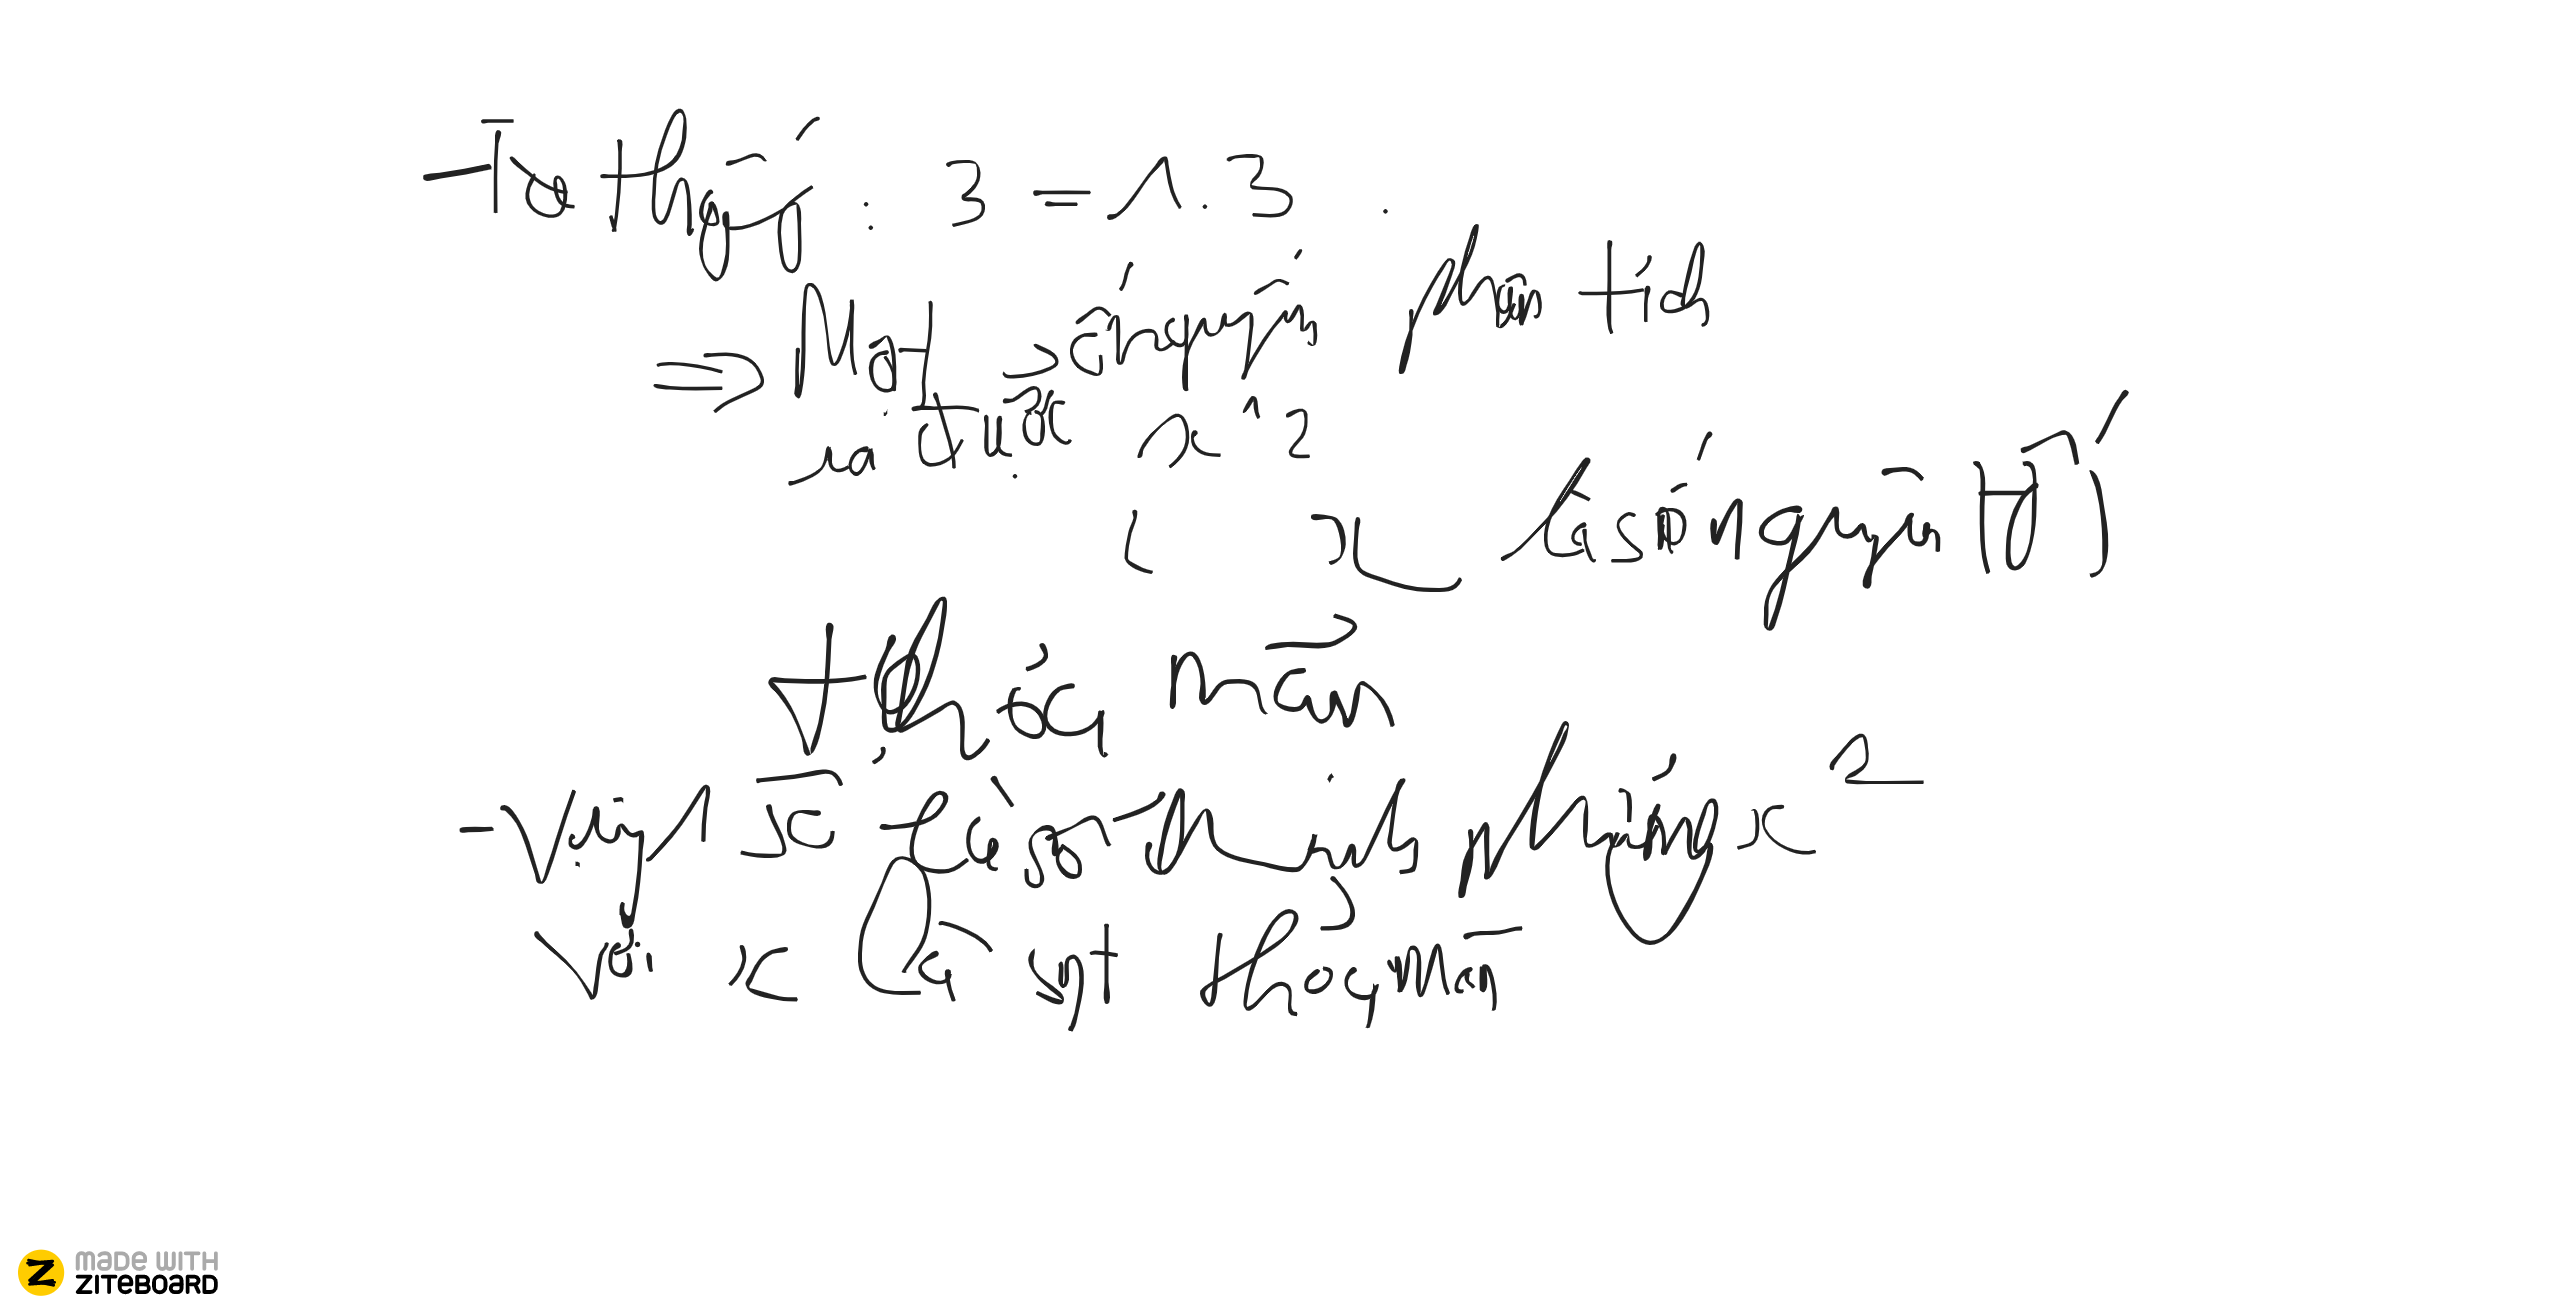 - Ta thấy : 3 = 1.3 .
⇒ Một số nguyên phân tích
ra được x^2
( x là số nguyên tố )
thỏa mãn
- Vậy 1 số là số chính phương x²
Với x là snt thỏa mãn
made with
ZITEBOARD